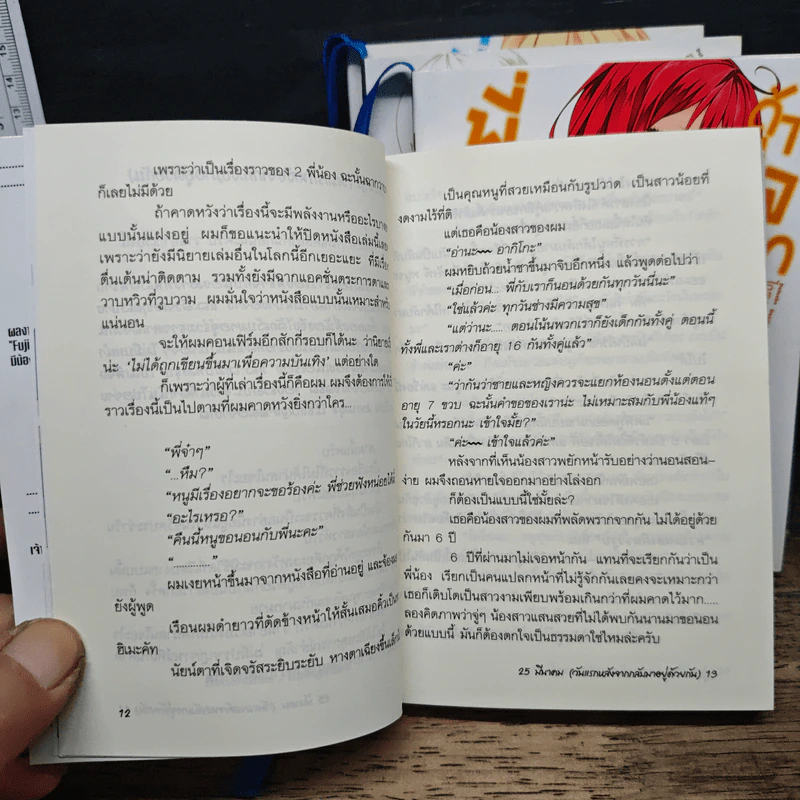 เพราะว่าเป็นเรื่องราวของ 2 พี่น้อง ฉะนั้นฉาก
ก็เลยไม่มีด้วย
ถ้าคาดหวังว่าเรื่องนี้จะมีพลังงานหรืออะไร
แบบนั้นแฝงอยู่ ผมก็ขอแนะนำให้ปิดหนังสือเล่มนี้
เพราะว่ายังมีนิยายเล่มอื่นในโลกนี้อีกเยอะแยะ ที่มี
ตื่นเต้นน่าติดตาม รวมทั้งยังมีฉากแอคชั่นตระการตาและ
วาบหวิวที่วูบวาม ผมมั่นใจว่าหนังสือแบบนั้นเหมาะ
แน่นอน
จะให้ผมคอนเฟิร์มอีกสักกี่รอบก็ได้นะ ว่านิยาย
น่ะ ‘ไม่ได้ถูกเขียนขึ้นมาเพื่อความบันเทิง’ แต่อย่างใด
ก็เพราะว่าผู้ที่เล่าเรื่องนี้ก็คือผม ผมจึงต้องการให้
ราวเรื่องนี้เป็นไปตามที่ผมคาดหวังยิ่งกว่าใคร...
“พี่จ๋าๆ”
“...หืม?”
“หนูมีเรื่องอยากจะขอร้องค่ะ พี่ช่วยฟังหน่อย
“อะไรเหรอ?”
“คืนนี้หนูขอนอนกับพี่นะคะ”
“............”
ผมเงยหน้าขึ้นมาจากหนังสือที่อ่านอยู่ และจ้อง
ยังผู้พูด
เรือนผมดำยาวที่ตัดข้างหน้าให้สั้นเสมอคิ้ว
ฮิเมะคัท
นัยน์ตาที่เจิดจรัสระยิบระยับ หางตาเฉียงขึ้น
12
เป็นคุณหนูที่สวยเหมือนกับรูปวาด เป็นสาวน้อยที่
งดงามไร้ที่ติ
แต่เธอคือน้องสาวของผม
“อ่านะ~~ อากิโกะ”
ผมหยิบถ้วยน้ำชาขึ้นมาจิบอีกหนึ่ง แล้วพูดต่อไปว่า
“เมื่อก่อน... พี่กับเราก็นอนด้วยกันทุกวันนี่นะ”
“ใช่แล้วค่ะ ทุกวันช่างมีความสุข”
“แต่ว่านะ..... ตอนโน้นพวกเราก็ยังเด็กกันทั้งคู่ ตอนนี้
ทั้งพี่และเราต่างก็อายุ 16 กันทั้งคู่แล้ว”
“ค่ะ”
“ว่ากันว่าชายและหญิงควรจะแยกห้องนอนตั้งแต่ตอน
อายุ 7 ขวบ ฉะนั้นคำขอของเราน่ะ ไม่เหมาะสมกับพี่น้องแท้ๆ
ในวัยนี้หรอกนะ เข้าใจมั้ย?”
“ค่ะ~~ เข้าใจแล้วค่ะ”
หลังจากที่เห็นน้องสาวพยักหน้ารับอย่างว่านอนสอน-
ง่าย ผมจึงถอนหายใจออกมาอย่างโล่งอก
ก็ต้องเป็นแบบนี้ใช่มั้ยล่ะ?
เธอคือน้องสาวของผมที่พลัดพรากจากกัน ไม่ได้อยู่ด้วย
กันมา 6 ปี
6 ปีที่ผ่านมาไม่เจอหน้ากัน แทนที่จะเรียกกันว่าเป็น
พี่น้อง เรียกเป็นคนแปลกหน้าที่ไม่รู้จักกันเลยคงจะเหมาะกว่า
เธอก็เติบโตเป็นสาวงามเพียบพร้อมเกินกว่าที่ผมคาดไว้มาก.....
ลองคิดภาพว่าจู่ๆ น้องสาวแสนสวยที่ไม่ได้พบกันนานมาขอนอน
ด้วยแบบนี้ มันก็ต้องตกใจเป็นธรรมดาใช่ไหมล่ะครับ
25 มีนาคม (วันแรกหลังจากกลับมาอยู่ด้วยกัน) 13